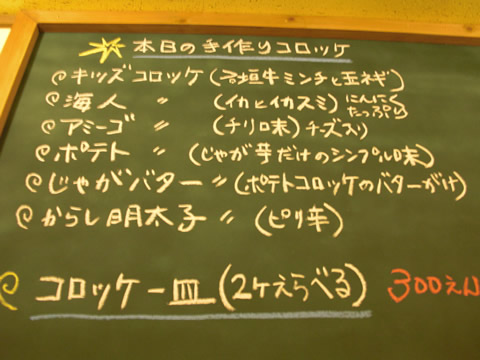 本日の手作りコロッケ
キッズコロッケ(石垣牛ミンチと玉ネギ)
海人 〃 (イカとイカスミ) にんにくたっぷり
アミーゴ 〃 (チリ味) チーズ入り
ポテト 〃 (じゃが芋だけのシンプル味)
じゃがバター〃(ポテトコロッケのバターがけ)
からし明太子 〃 (ピリ辛)
コロッケ一皿(2ケえらべる) 300えん